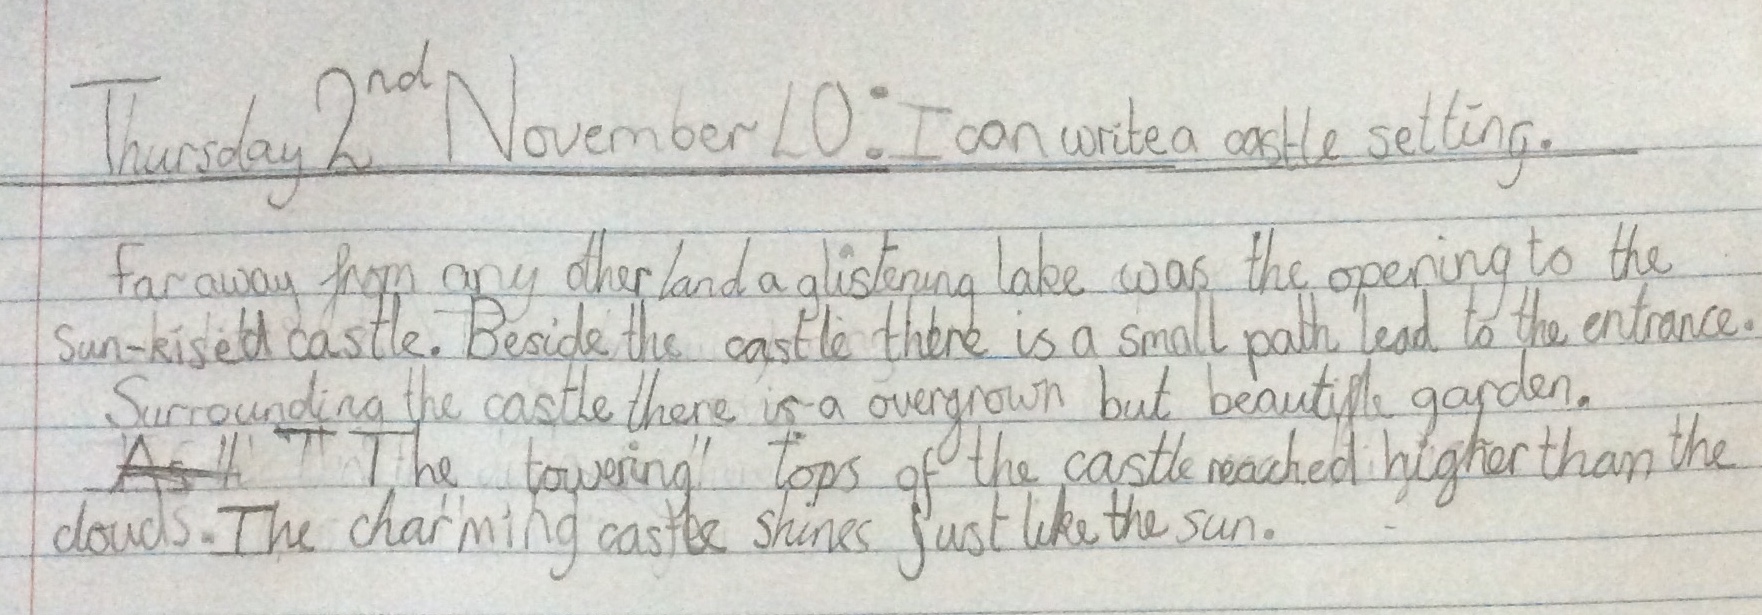 Thursday 2nd November LO: I can write a castle setting.
Far away from any other land a glistening lake was the opening to the
sun-kisetd castle. Beside the castle there is a small path lead to the entrance.
Surrounding the castle there is a overgrown but beautifle garden.
The towering tops of the castle reached higher than the
clouds. The charming castle shines just like the sun.